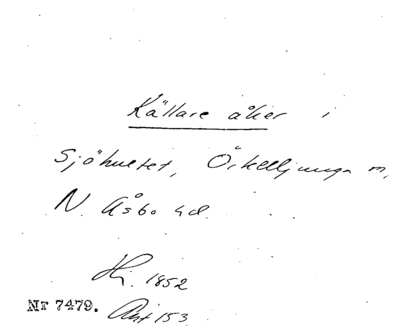 Källare åker i
Sjöhultet, Örkelljunga m,
N. Åsbo hd.
Hi. 1852
Nr 7479. Akt 153